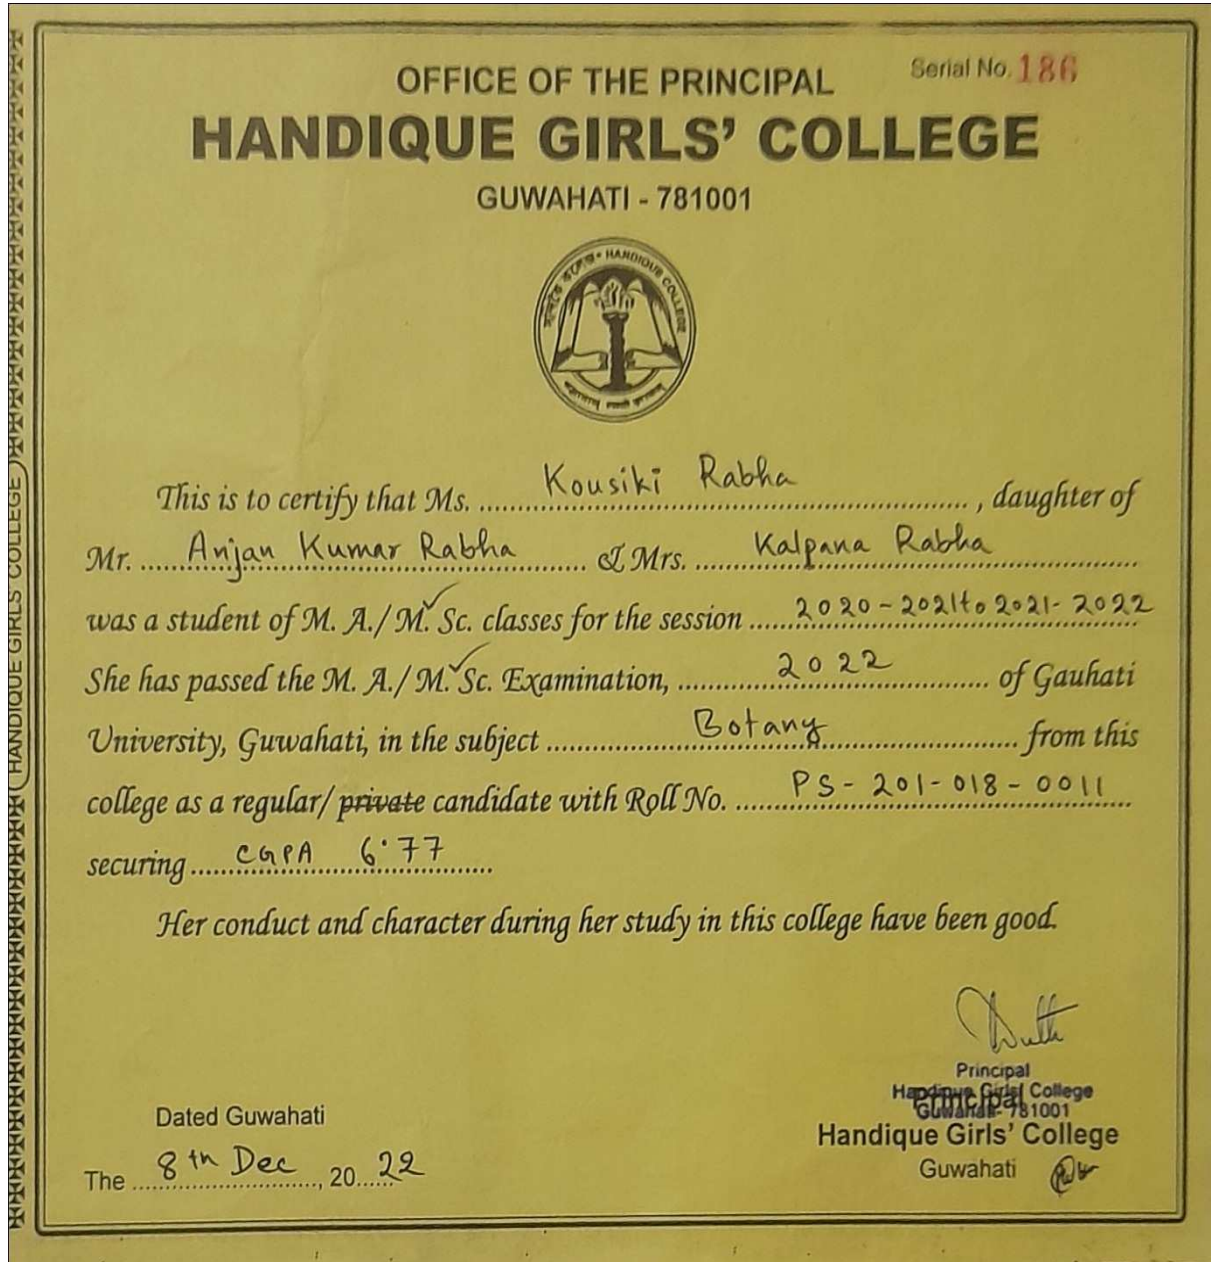 Serial No. 186
OFFICE OF THE PRINCIPAL
HANDIQUE GIRLS' COLLEGE
GUWAHATI - 781001
HANDIQUE COLLEGE
HANDIQUE GIRLS' COLLEGE
This is to certify that Ms. Kousiki Rabha, daughter of
Mr. Anjan Kumar Rabha & Mrs. Kalpana Rabha
was a student of M. A./ M. Sc. classes for the session 2020-2021 to 2021-2022
She has passed the M. A./ M. Sc. Examination, 2022 of Gauhati
University, Guwahati, in the subject Botany from this
college as a regular/ private candidate with Roll No. PS-201-018-0011
securing CGPA 6.77
Her conduct and character during her study in this college have been good.
Principal
Handique Girls' College
Guwahati- 781001
Principal
Handique Girls' College
Guwahati
Dated Guwahati
The 8th Dec, 2022